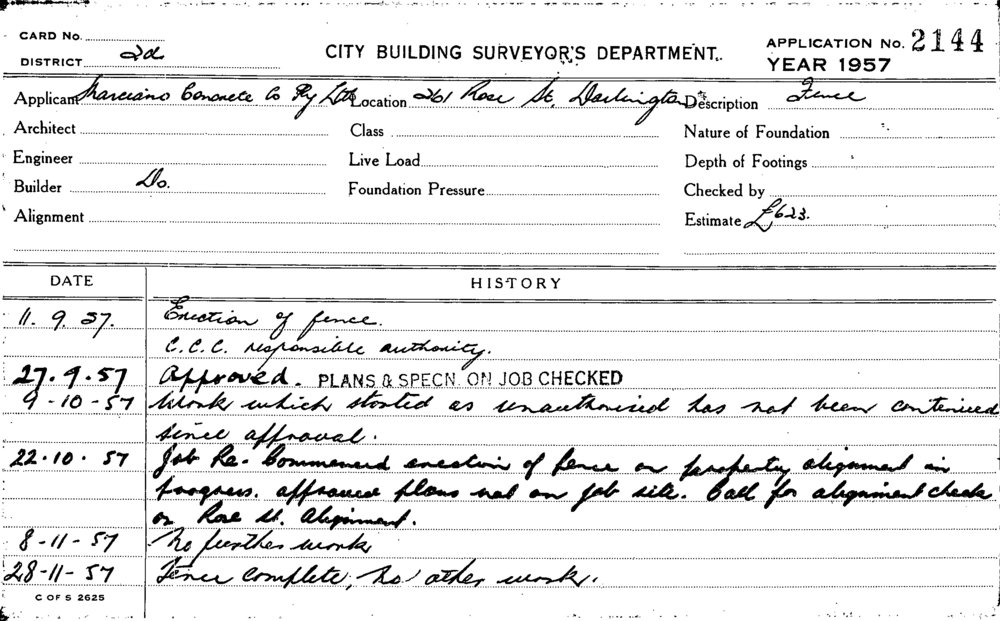 CARD No.
DISTRICT 2d
CITY BUILDING SURVEYOR'S DEPARTMENT.
APPLICATION No. 2144
YEAR 1957
Applicant Marciano Concrete Co Pty Ltd Location 261 Rose St. Darlington Description Fence
Architect Class Nature of Foundation
Engineer Live Load Depth of Footings
Builder Do. Foundation Pressure Checked by
Alignment Estimate £623.
DATE HISTORY
11.9.57. Erection of fence.
C.C.C. responsible authority.
27.9.57 Approved. PLANS & SPECN. ON JOB CHECKED
9-10-57 Work which started as unauthorised has not been continued
since approval.
22.10.57 Job Re-Commenced erection of fence on property alignment in
progress. approved plans not on job site. Call for alignment check
on Rose St. Alignment.
8-11-57 No further work
28-11-57 Fence complete, no other work.
C OF S 2625